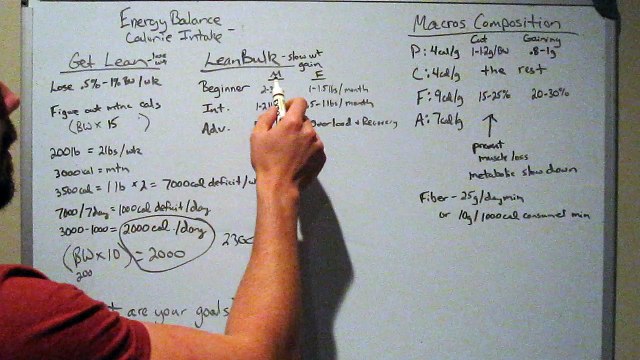 Energy Balance
Calorie Intake -
Get Lean - lose wt
Lose .5%-1% BW/wk
Figure out mtnc cals
(BW x 15 )
200lb = 2lbs/wk
3000cal = mtn
3500cal = 1lb x 2 = 7000cal deficit/w
7000/7day = 1000cal deficit/day
3000-1000 = 2000cal/day
(BW x 10) = 2000
200
2300
are your goals
Lean Bulk - slow wt gain
M F
Beginner 2- 1-1.5lbs/month
Int. 1-2 .5-1lbs/month
Adv. Overload & Recovery
Macros Composition
Cut Gaining
P: 4cal/g 1-1.2g/BW .8-1g
C: 4cal/g the rest
F: 9cal/g 15-25% 20-30%
A: 7cal/g
prevent
muscle loss
metabolic slow down
Fiber - 25g/day min
or 10g/1000cal consumed min